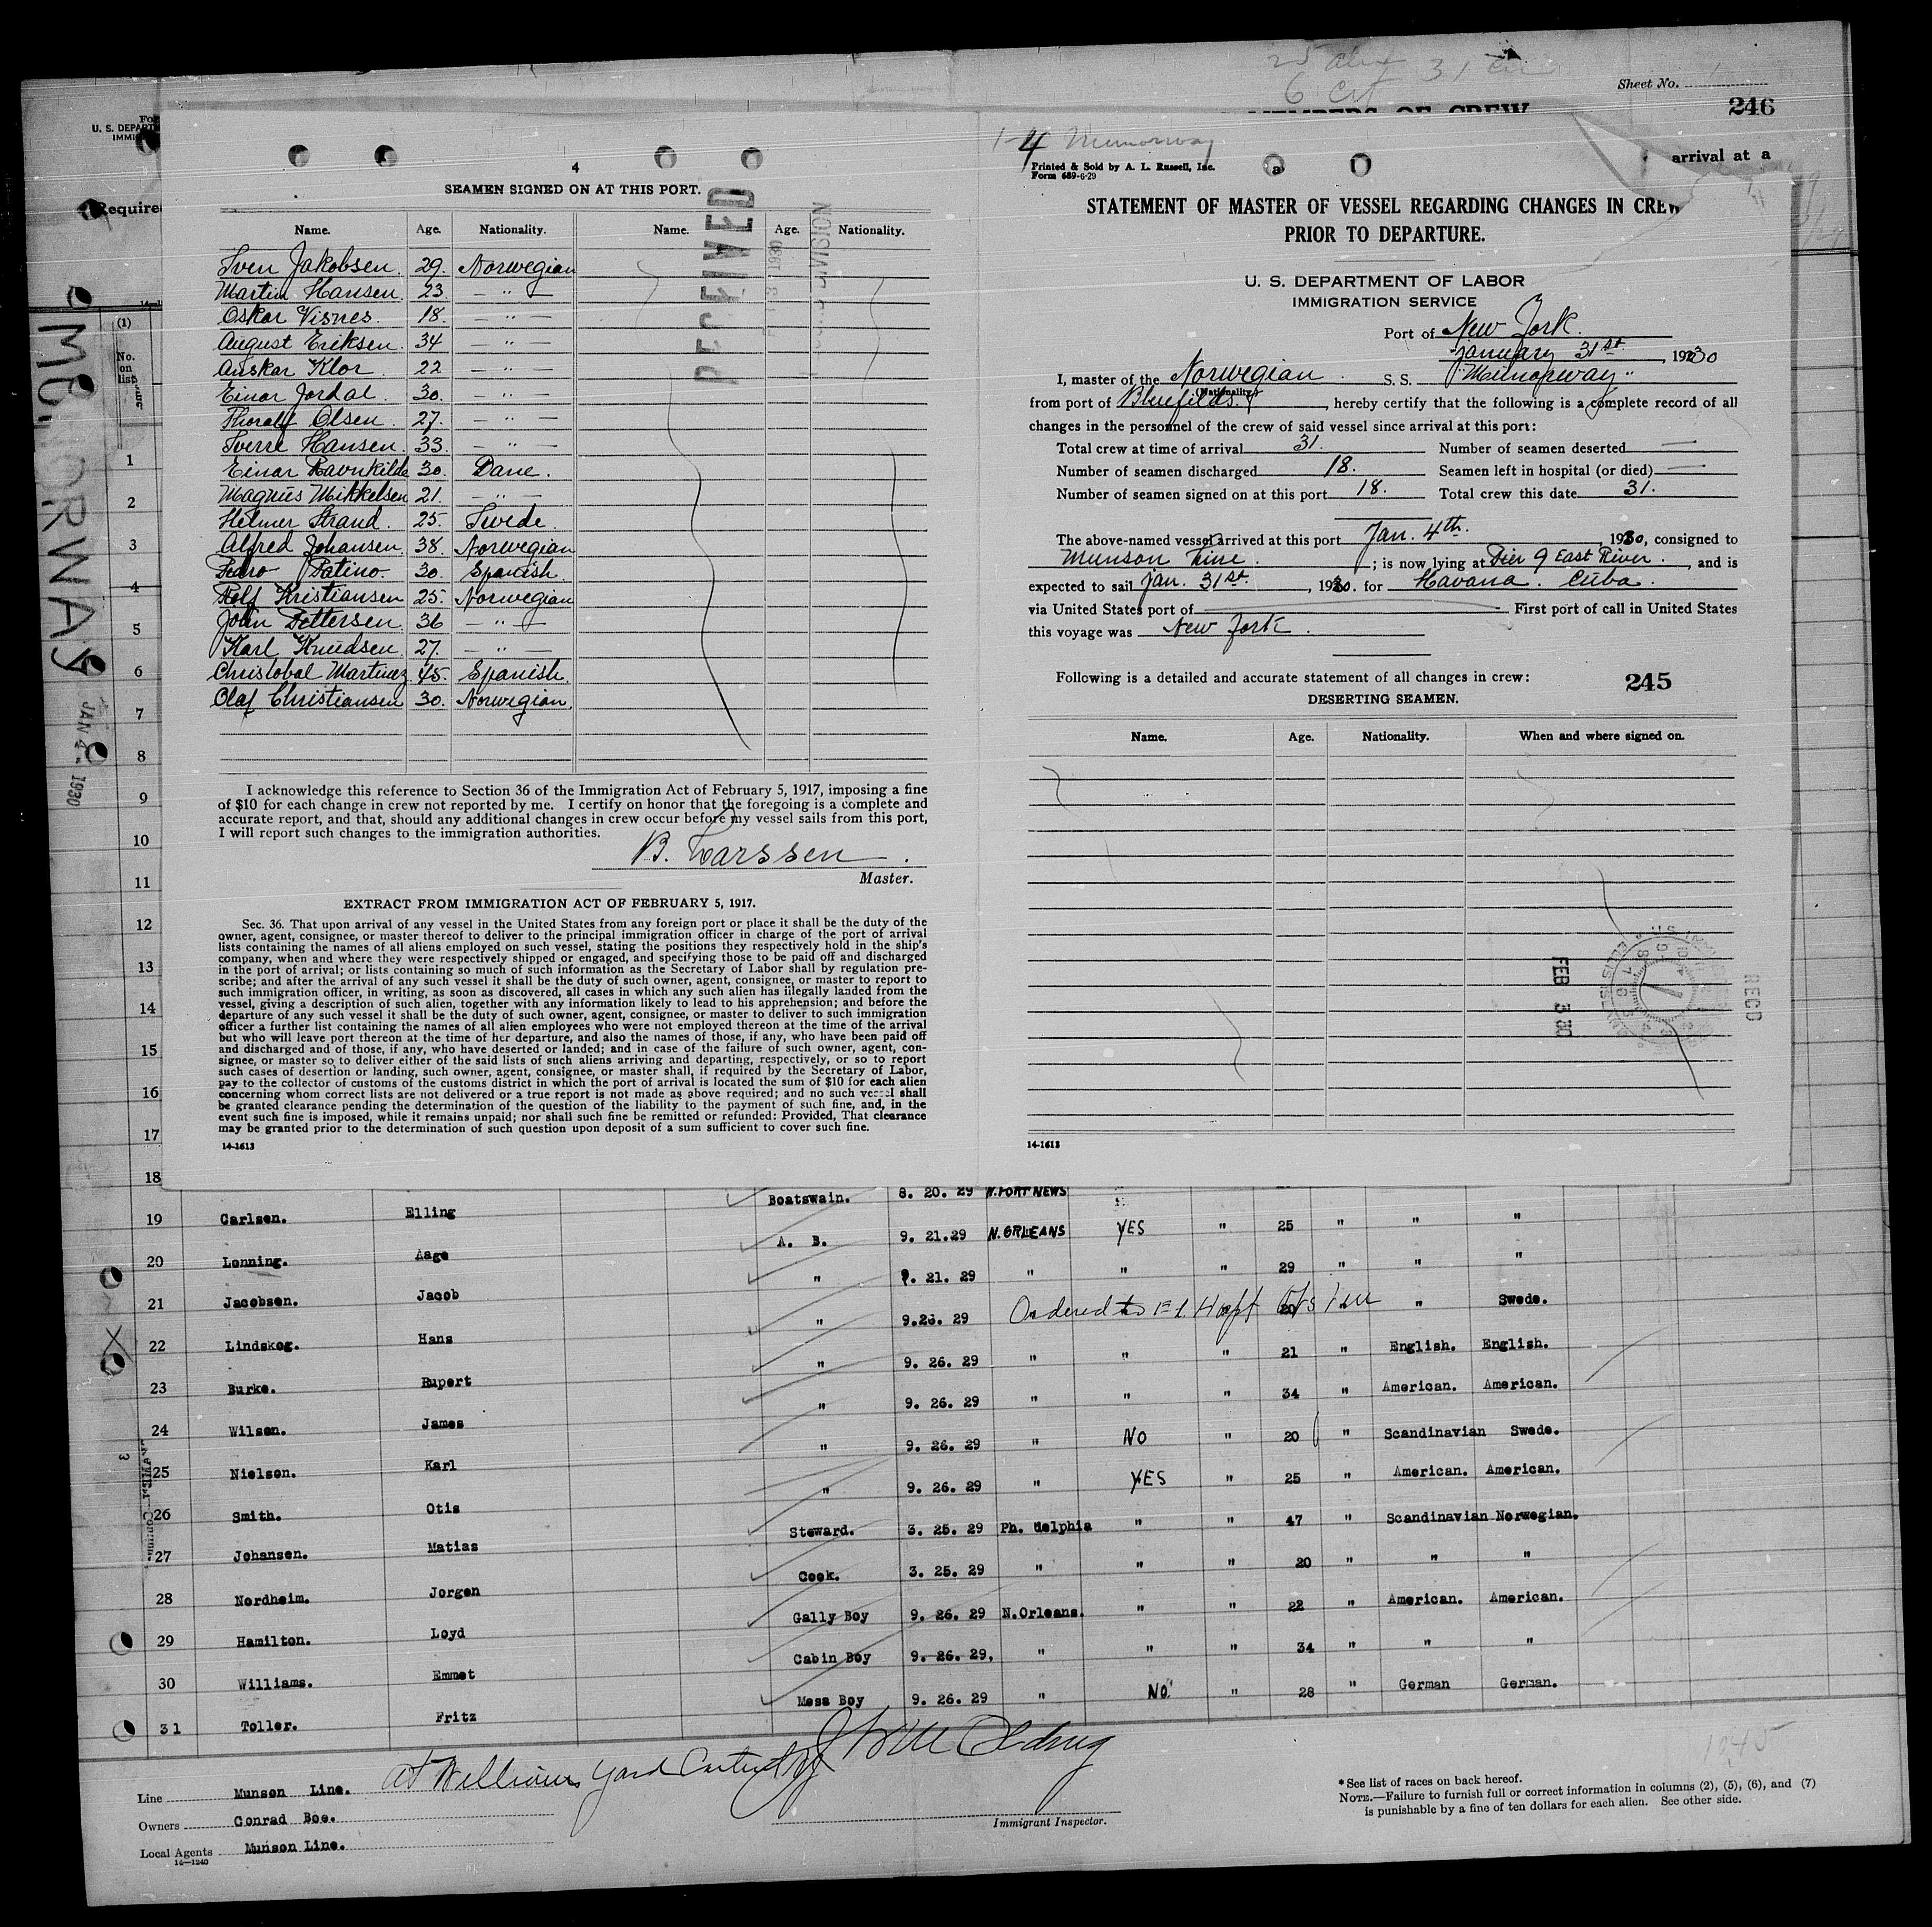 Sheet No.
246
U. S. DEPART
IMMI
Require
arrival at a
4
SEAMEN SIGNED ON AT THIS PORT.
Name. Age. Nationality. Name. Age. Nationality.
Sven Jakobsen. 29. Norwegian
Martin Hansen. 23. — " —
Oskar Visnes. 18. — " —
August Eriksen. 34 — " —
Anskar Klor 22 — " —
Einar Jordal. 30. — " —
Thoralf Olsen. 27. — " —
Sverre Hansen. 33. — " —
Einar Ravnkilde 30. Dane.
Magnus Mikkelsen 21. — " —
Helmer Strand. 25. Swede.
Alfred Johansen. 38. Norwegian
Pedro Patino. 30. Spanish.
Rolf Kristiansen 25. Norwegian
John Pettersen. 36 — " —
Karl Knudsen. 27. — " —
Christobal Martinez 45. Spanish.
Olaf Christiansen 30. Norwegian.
I acknowledge this reference to Section 36 of the Immigration Act of February 5, 1917, imposing a fine
of $10 for each change in crew not reported by me. I certify on honor that the foregoing is a complete and
accurate report, and that, should any additional changes in crew occur before my vessel sails from this port,
I will report such changes to the immigration authorities.
B. Larssen.
Master.
EXTRACT FROM IMMIGRATION ACT OF FEBRUARY 5, 1917.
Sec. 36. That upon arrival of any vessel in the United States from any foreign port or place it shall be the duty of the
owner, agent, consignee, or master thereof to deliver to the principal immigration officer in charge of the port of arrival
lists containing the names of all aliens employed on such vessel, stating the positions they respectively hold in the ship's
company, when and where they were respectively shipped or engaged, and specifying those to be paid off and discharged
in the port of arrival; or lists containing so much of such information as the Secretary of Labor shall by regulation pre-
scribe; and after the arrival of any such vessel it shall be the duty of such owner, agent, consignee, or master to report to
such immigration officer, in writing, as soon as discovered, all cases in which any such alien has illegally landed from the
vessel, giving a description of such alien, together with any information likely to lead to his apprehension; and before the
departure of any such vessel it shall be the duty of such owner, agent, consignee, or master to deliver to such immigration
officer a further list containing the names of all alien employees who were not employed thereon at the time of the arrival
but who will leave port thereon at the time of her departure, and also the names of those, if any, who have been paid off
and discharged and of those, if any, who have deserted or landed; and in case of the failure of such owner, agent, con-
signee, or master so to deliver either of the said lists of such aliens arriving and departing, respectively, or so to report
such cases of desertion or landing, such owner, agent, consignee, or master shall, if required by the Secretary of Labor,
pay to the collector of customs of the customs district in which the port of arrival is located the sum of $10 for each alien
concerning whom correct lists are not delivered or a true report is not made as above required; and no such vessel shall
be granted clearance pending the determination of the question of the liability to the payment of such fine, and, in the
event such fine is imposed, while it remains unpaid; nor shall such fine be remitted or refunded: Provided, That clearance
may be granted prior to the determination of such question upon deposit of a sum sufficient to cover such fine.
14-1613
Munorway
Printed & Sold by A. L. Russell, Inc.
Form 689-6-29
STATEMENT OF MASTER OF VESSEL REGARDING CHANGES IN CREW
PRIOR TO DEPARTURE.
U. S. DEPARTMENT OF LABOR
IMMIGRATION SERVICE
Port of New York.
January 31st, 1930
I, master of the Norwegian S. S. "Munorway"
(Nationality.)
from port of Bluefields., hereby certify that the following is a complete record of all
changes in the personnel of the crew of said vessel since arrival at this port:
Total crew at time of arrival 31. Number of seamen deserted —
Number of seamen discharged 18. Seamen left in hospital (or died) —
Number of seamen signed on at this port 18. Total crew this date 31.
The above-named vessel arrived at this port Jan. 4th., 1930, consigned to
Munson Line.; is now lying at Pier 9 East River., and is
expected to sail Jan. 31st., 1930. for Havana. Cuba.
via United States port of — First port of call in United States
this voyage was New York.
Following is a detailed and accurate statement of all changes in crew:
245
DESERTING SEAMEN.
Name. Age. Nationality. When and where signed on.
FEB 3 30
RECD
14-1613
RECEIVED
(1)
No. on list
JAN 4 - 1930
1
2
3
4
5
6
7
8
9
10
11
12
13
14
15
16
17
18
Boatswain. 8. 20. 29 N.PORT NEWS
19 Carlsen. Elling A. B. 9. 21.29 N.ORLEANS YES " 25 " " "
20 Lonning. Aage " 9. 21. 29 " " " 29 " " "
21 Jacobsen. Jacob " 9.23. 29 Ordered to 20 " Swede.
22 Lindskog. Hans " 9. 26. 29 " " " 21 " English. English.
23 Burke. Rupert " 9. 26. 29 " " " 34 " American. American.
24 Wilson. James " 9. 26. 29 " NO " 20 " Scandinavian Swede.
25 Nielson. Karl " 9. 26. 29 " YES " 25 " American. American.
26 Smith. Otis Steward. 3. 25. 29 Ph. delphia " " 47 " Scandinavian Norwegian.
27 Johansen. Matias Cook. 3. 25. 29 " " " 20 " " "
28 Nordheim. Jorgen Gally Boy 9. 26. 29 N.Orleans. " " 22 " American. American.
29 Hamilton. Loyd Cabin Boy 9. 26. 29. " " " 34 " " "
30 Williams. Emmet Mess Boy 9. 26. 29 " NO. " 28 " German German.
31 Toller. Fritz
Line Munson Line.
Owners Conrad Boe.
Local Agents Munson Line.
14—1240
Immigrant Inspector.
* See list of races on back hereof.
NOTE.—Failure to furnish full or correct information in columns (2), (5), (6), and (7)
is punishable by a fine of ten dollars for each alien. See other side.